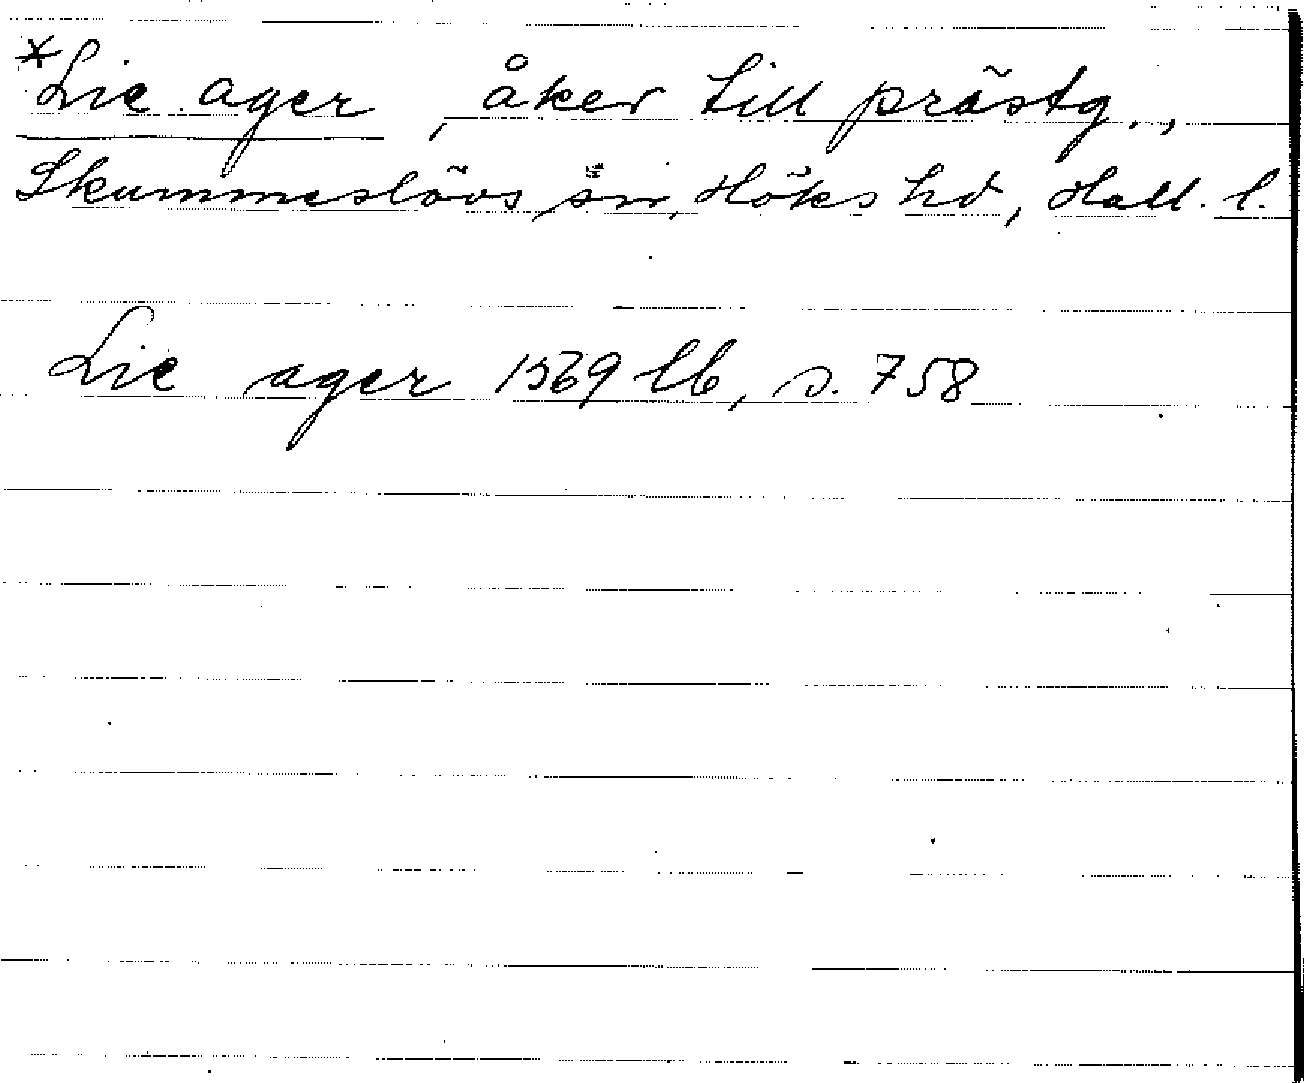 *Lie ager, åker till prästg.,
Skummeslövs sn, Höks hd, Hall. l.
Lie ager 1569 lb, s. 758